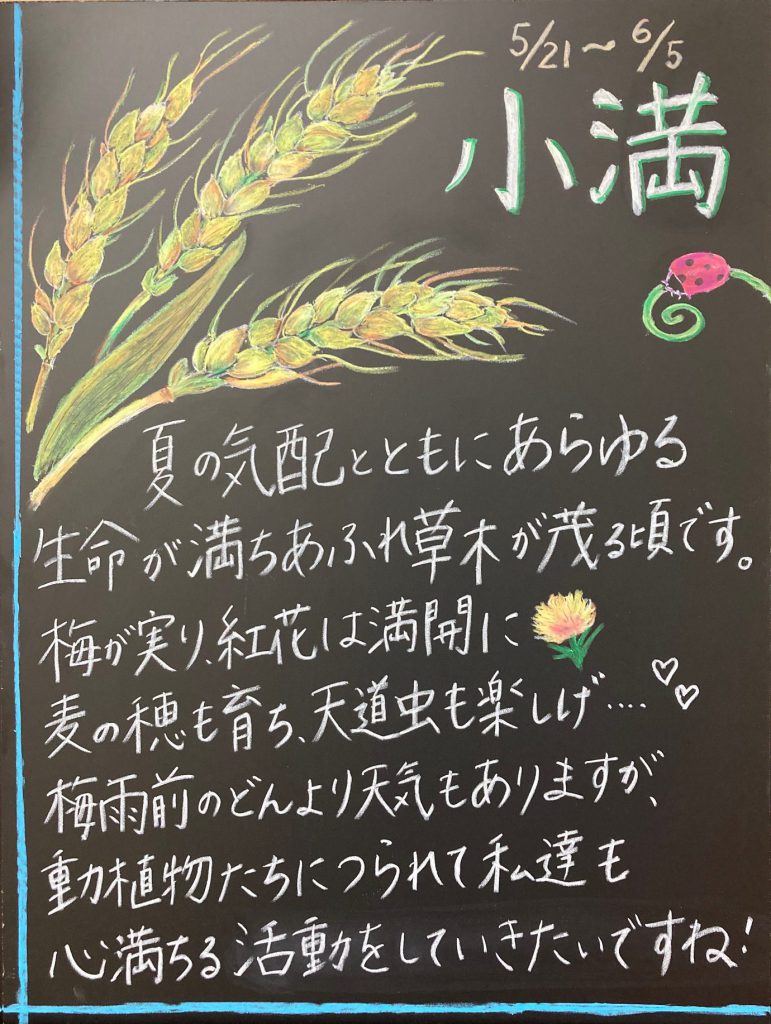 5/21〜6/5
小満
夏の気配とともにあらゆる
生命が満ちあふれ草木が茂る頃です。
梅が実り、紅花は満開に
麦の穂も育ち、天道虫も楽しげ‥‥
梅雨前のどんより天気もありますが、
動植物たちにつられて私達も
心満ちる活動をしていきたいですね!